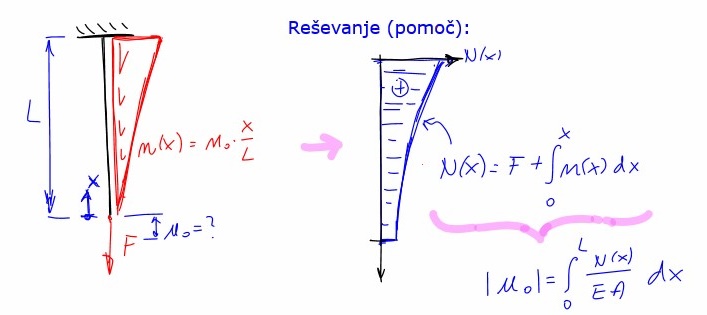 Reševanje (pomoč):
N(x)
L
n(x) = n₀ · x/L
x
N(x) = F + ∫₀ˣ n(x) dx
F
u₀ = ?
|u₀| = ∫₀ᴸ N(x)/EA dx